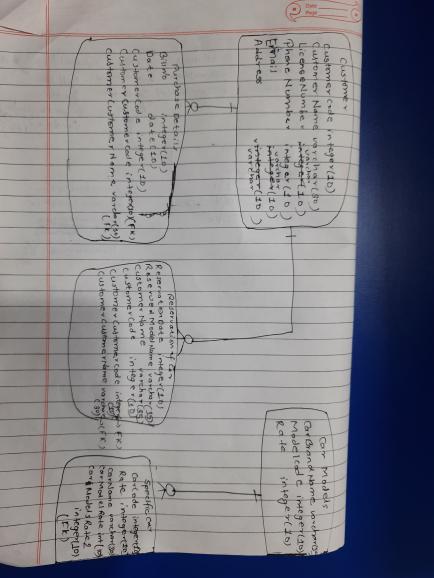 Date
Page
Customer
Customer code integer(10)
Customer Name varchar(50)
License Number integer(10) varchar
Phone Number integer(10)
Email integer(10) varchar
Address varchar
Purchase Details
Billno integer(10)
Date date(10)
Customer Code integer(10)
Customer Customer code integer(10)(FK)
Customer Customer Name varchar(50)
(FK)
Reservation of Car
Reservation Date integer(10)
Reserved Model Name varchar(35)
Customer Name varchar(35)
Customer Code integer(10)
Customer Customer Code integer(FK)
(10)
Customer Customer Name varchar(FK)
(50)
Car Models
Car Brand Name varchar(50)
Model code integer(10)
Rate integer(10)
Specific car
Car Code integer(10)
Rate integer(10)
Car Name varchar(50)
Car Model Rate int(10)
Car Models Rate2
integer(10)
(FK)